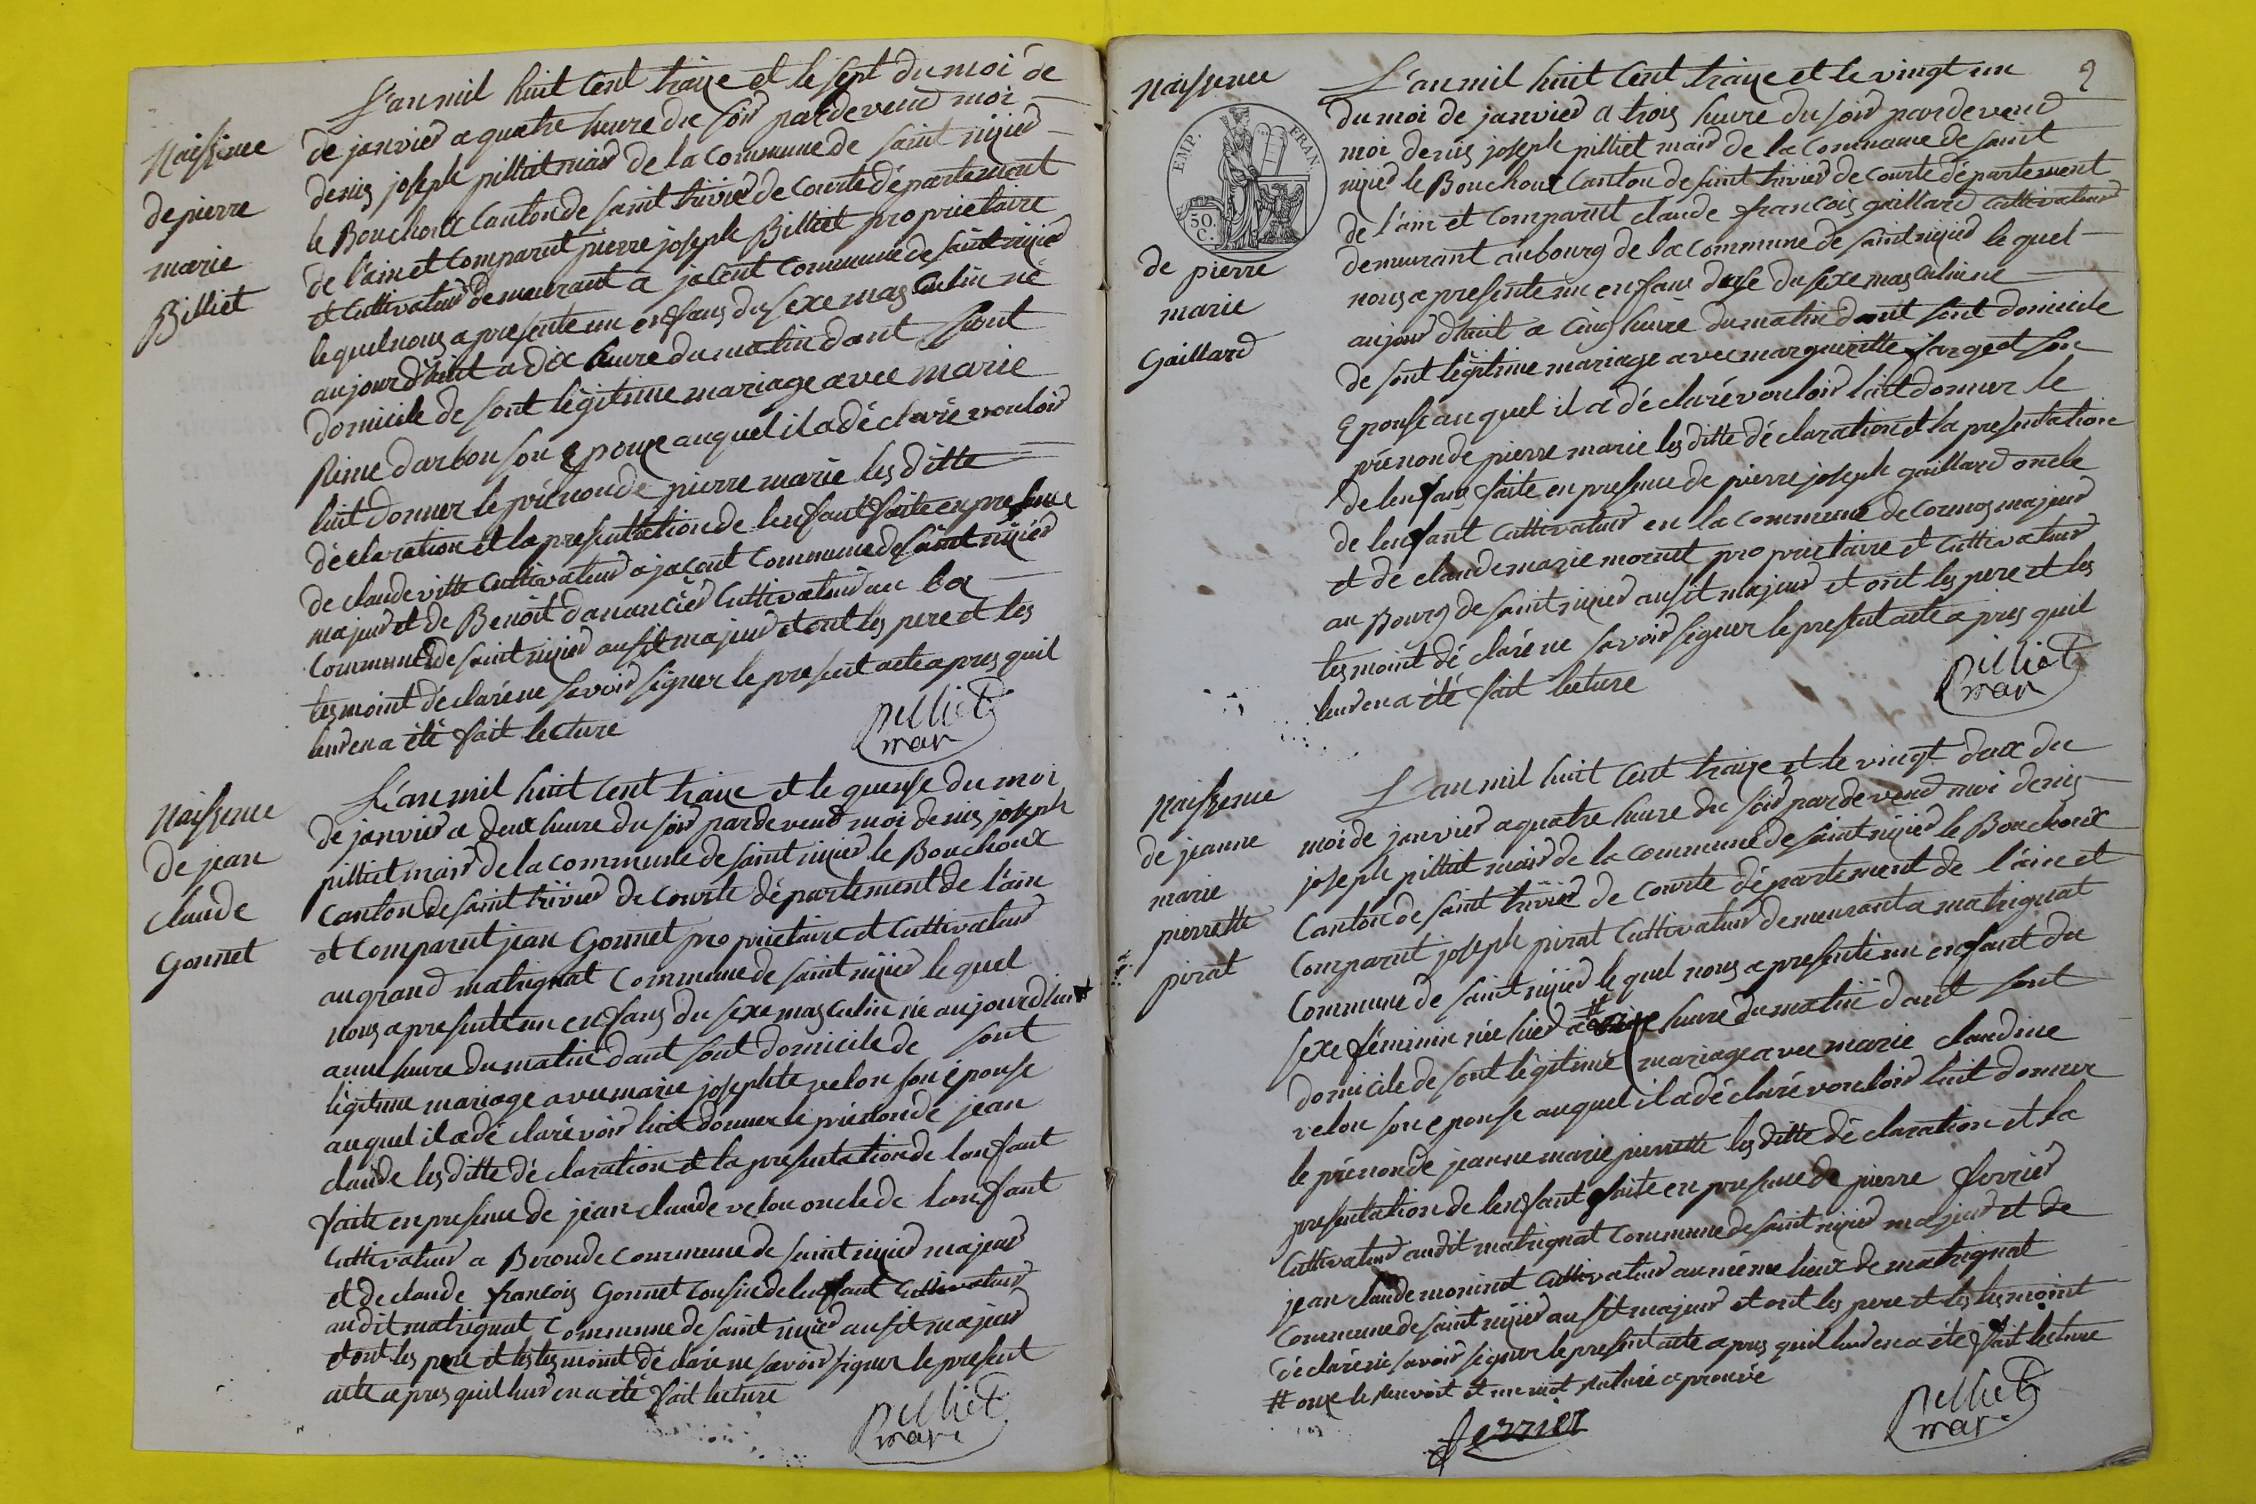 Naissence
de pierre
marie
Billiet
L'an mil huit cent traize et le sept du moi de
de janvier a quatre heure du soir pardevend moi
denis joseph pilliet mair de la commune de saint nizier
le Bouchoux Canton de saint trivier de courte département
de l'ain et comparut pierre joseph Billiet proprietaire
et cultivateur demeurant a jacout commune de saint nizier
le quel nous a presenté un enfans du sexe mas culin né
aujourd'huit a dix heure du matin dont sont
domicile de sont légitime mariage avec marie
Reine darbon son Epouse auquel il a dé claré vouloir
luit donner le prénon de pierre marie les ditte
déclaration et la presentation de lenfant faite en presence
de claude vitte cultivateur a jacout commune de saint nizier
majeur et de Benoit danancier cultivateur au
commune de saint nizier ausit majeur et ont les pere et les
tesmoint déclaré ne savoir signer le present acte apres quil
leur en a été fait lecture
pilliet
mair
Naissence
de jean
claude
Gonnet
L'an mil huit cent traize et le quense du moi
de janvier a deux heure du soir pardevend moi denis joseph
pilliet mair de la commune de saint nizier le Bouchoux
canton de saint trivier de courte département de l'ain
et comparut jean Gonnet proprietaire et cultivateur
au grand matrignat commune de saint nizier le quel
nous a presenté un enfans du sexe masculin né aujourd'huit
a une heure du matin dant sont domicile de sont
légitime mariage avec marie josephte velon son épouse
auquel il a dé claré voir luit donner le prénon de jean
claude les ditte dé claration et la presentation de lanfant
faite en presence de jean claude velon oncle de lanfant
cultivateur a Beronde commune de saint nizier majeur
et de claude francois Gonnet cousin de lenfant cultivateur
au dit matrignat commune de saint nizier ausit majeur
et ont les pere et les tesmoint dé claré ne savoir signer le present
acte apres quil leur en a été fait lecture
pilliet
mair
2
Naissence
EMP. FRAN.
50
C.
de pierre
marie
Gaillard
L'an mil huit cent traize et le vingt un
du moi de janvier a trois heure du soir pardevend
moi denis joseph pilliet mair de la commune de saint
nizier le Bouchoux Canton de saint trivier de courte département
de l'ain et comparut claude francois gaillard cultivateur
demeurant au bourg de la commune de saint nizier le quel
nous a presenté un enfans du sexe mas culin né
aujour dhuit a cinq heure du matin dont sont domicile
de sont légitime mariage avec marguerite fargeot son
Epouse auquel il a dé claré vouloir luit donner le
prénon de pierre marie les ditte dé claration et la presentation
de lenfans faite en presence de pierre joseph gaillard oncle
de lenfant cultivateur en la commune de cormos majeur
et de claude marie moruet proprietaire et cultivateur
au Bourg de saint nizier ausit majeur et ont les pere et les
tesmoint dé claré ne savoir signer le present acte apres quil
leur en a été fait lecture
pilliet
mair
Naissence
de jeanne
marie
pierrette
pirat
L'an mil huit cent traize et le vingt deux du
moi de janvier a quatre heure du soir pardevend moi denis
joseph pilliet mair de la commune de saint nizier le Bouchoux
canton de saint trivier de courte département de l'ain et
comparut joseph pirat cultivateur demeurant a matrignat
commune de saint nizier le quel nous a presenté un enfant du
sexe féminin née hier a # heure du matin dant sont
domicile de sont légitime mariage avec marie claudine
velon son epouse auquel il a dé claré vouloir luit donner
le prénon de jeanne marie pierrette les ditte dé claration et la
presentation de lenfant faite en presence de pierre ferrier
cultivateur audit matrignat commune de saint nizier majeur et de
jean claude moninet cultivateur au même lieux de matrignat
commune de saint nizier ausit majeur et ont les pere et les tesmoint
dé claré ne savoir signer le present acte apres quil leur en a été fait lecture
# onze le renvoit et un mot raturé aprouvé
ferrier
pilliet
mair